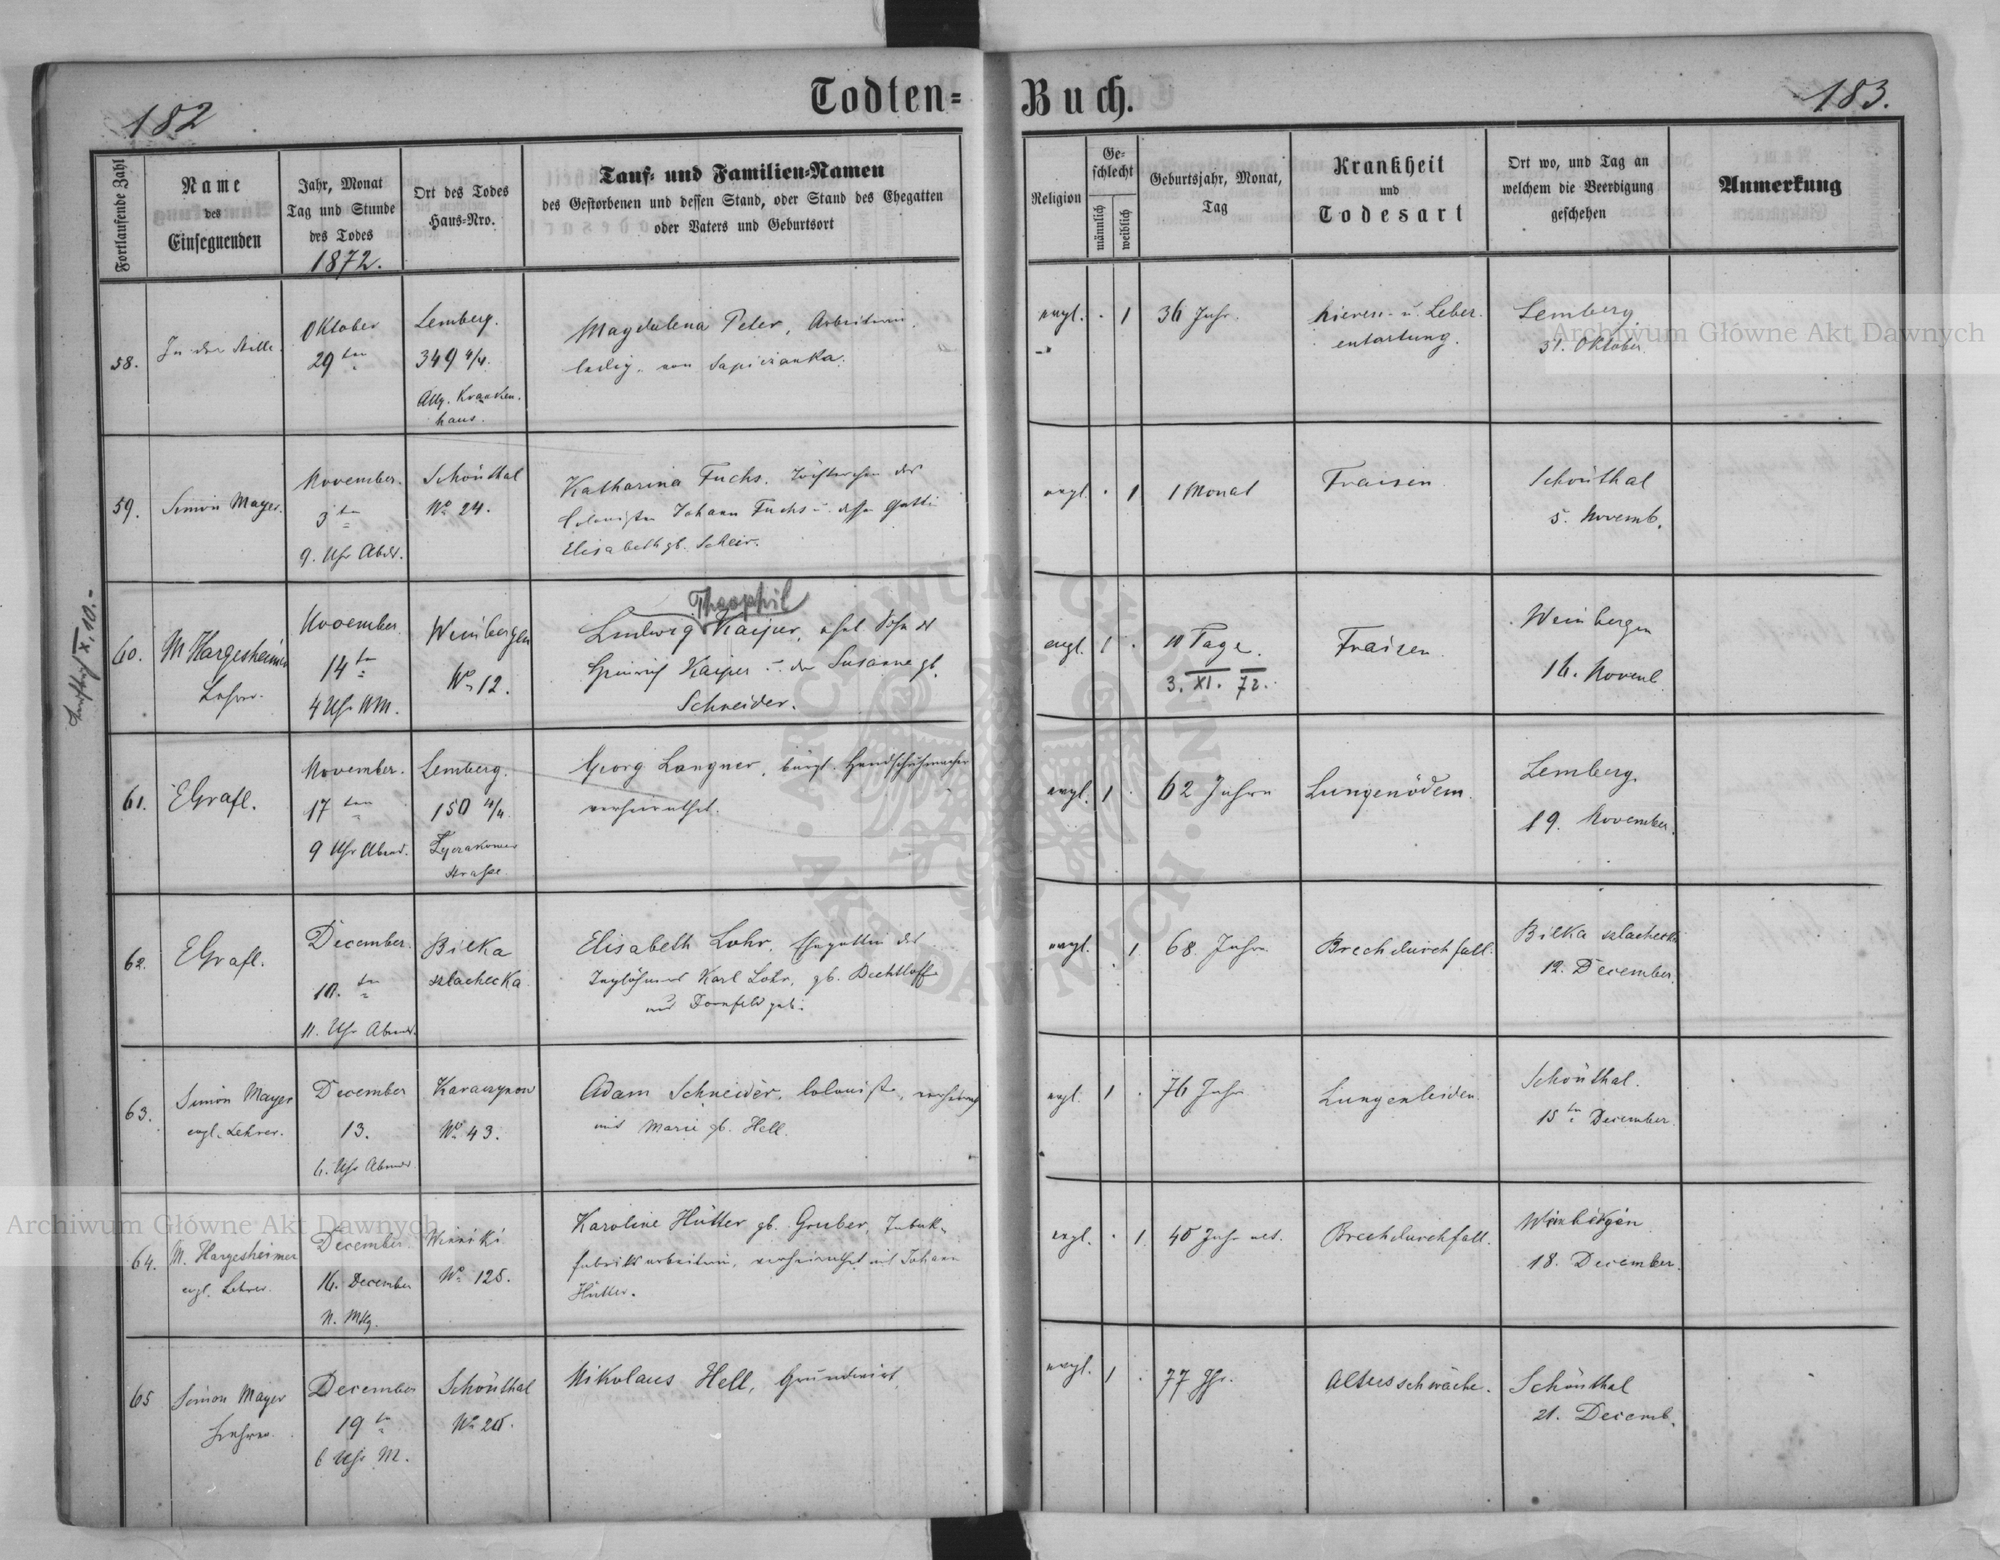 182
Todten-
Buch.
183.
Fortlaufende Zahl
Name
des
Einsegnenden
Jahr, Monat
Tag und Stunde
des Todes
1872.
Ort des Todes
Haus-Nro.
Tauf- und Familien-Namen
des Gestorbenen und dessen Stand, oder Stand des Ehegatten
oder Vaters und Geburtsort
Religion
Ge-
schlecht
männlich
weiblich
Geburtsjahr, Monat,
Tag
Krankheit
und
Todesart
Ort wo, und Tag an
welchem die Beerdigung
geschehen
Anmerkung
58.
In der Stille.
Oktober
29 ten
Lemberg.
349 4/4.
Allg. Kranken-
haus.
Magdalena Peter, Arbeiterin,
ledig, von Sapiezanka.
evgl.
1
36 Jahr.
Nieren- u. Leber-
entartung.
Lemberg
31. Oktober
59.
Simon Mayer.
November.
3 ten
9. Uhr Abds.
Schönthal
No 24.
Katharina Fuchs. Töchterchen des
Colonisten Johann Fuchs u. dessen Gattin
Elisabeth gb. Scheir.
evgl.
1
1 Monat
Fraisen
Schönthal
5. Novemb.
60.
M Hargesheimer
Lehrer.
November
14 ten
4 Uhr NM.
Weinbergen
No 12.
Theophil
Ludwig Kaiper, ehel. Sohn des
Heinrich Kaiper u. der Susanne gb.
Schneider.
evgl.
1
11 Tage.
3. XI. 72.
Fraisen
Weinbergen
16. Novemb.
X. 10.-
61.
EGrafl.
November.
17 ten
9 Uhr Abend.
Lemberg.
150 4/4.
Łyczakower
strasse.
Georg Langner, bürgl. Handschuhmacher
verheirathet.
evgl.
1
62 Jahre
Lungenödem.
Lemberg.
19. November.
62.
EGrafl.
December.
10. ten
11. Uhr Abends.
Bilka
szlachecka
Elisabeth Lohr, Ehegattin des
Taglöhners Karl Lohr, gb. Bechtloff
aus Dornfeld geb.
evgl.
1
68 Jahre
Brechdurchfall.
Bilka szlachecka
12. December.
63.
Simon Mayer
evgl. Lehrer.
December
13.
6. Uhr Abends.
Karaczynow
No 43.
Adam Schneider, Coloniste, verheirath.
mit Marie gb. Hell.
evgl.
1
76 Jahre
Lungenleiden
Schönthal.
15 ten December.
64.
M. Hargesheimer
evgl. Lehrer.
December.
16. December
N. Mttg.
Winniki
No 125.
Karoline Hütter gb. Gruber, Tabak-
fabriksarbeiterin, verheirathet mit Johann
Hütter.
evgl.
1
45 Jahr alt.
Brechdurchfall.
Weinbergen
18. December.
65
Simon Mayer
Lehrer.
December
19 ten
6 Uhr M.
Schönthal
Nikolaus Hell, Grundwirt
evgl.
1
77 Jhr.
Altersschwäche.
Schönthal
21. Decemb.
Archiwum Główne Akt Dawnych
Archiwum Główne Akt Dawnych
ARCHIWUM GŁÓWNE AKT DAWNYCH